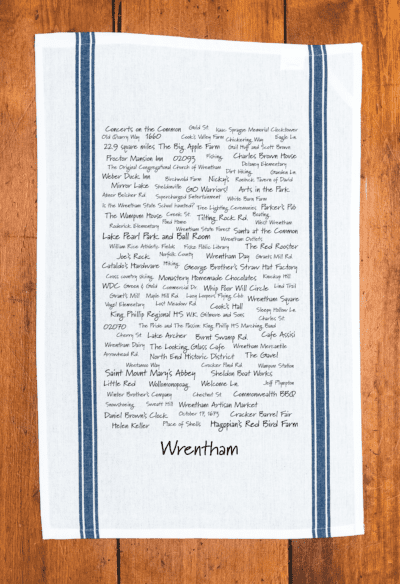 Concerts on the Common Gold St. Isaac Sprague Memorial Clocktower
Old Quarry Way 1660 Cook's Valley Farm Chickering Way Eagle Ln
22.9 square miles The Big Apple Farm Gail Huff and Scott Brown
Proctor Mansion Inn 02093 Fishing Charles Brown House
The Original Congregational Church of Wrentham Delaney Elementary
Weber Duck Inn Birchwold Farm Nicky's Dirt Hiking
Mirror Lake Sheldonville GO Warriors! Arts in the Park
Amos Belcher Rd Supercharged Entertainment White Barn Farm
Is the Wrentham State School haunted? Tree Lighting Ceremonies Parker's Pub
The Wampum House Creek St Tilting Rock Rd. Boating
Roderick Elementary Wrentham State Forest Santa at the Common
Lake Pearl Park and Ball Room Wrentham Outlets
William Rice Athletic Fields Fiske Public Library The Red Rooster
Joe's Rock Norfolk County Wrentham Day Grants Mill Rd
Cataldo's Hardware Hiking George Brother's Straw Hat Factory
Cross country skiing Monastery Homemade Chocolates Knuckup Hill
WDC Green & Gold Commercial Dr. Whip Poor Will Circle Lind Trail
Grant's Mill Maple Hill Rd Wrentham Square
Vogel Elementary Lost Meadow Rd Cook's Hall Sleepy Hollow Ln
King Phillip Regional HS W.K. Gilmore and Sons Charles St
02070 The Pride and The Passion: King Phillip HS Marching Band
Cherry St Lake Archer Burnt Swamp Rd. Cafe Assisi
Wrentham Dairy The Looking Glass Cafe Wrentham Mercantile
Arrowhead Rd North End Historic District The Gavel
Weetamoe Way Crocker Pond Rd Wampum Station
Saint Mount Mary's Abbey Sheldon Boat Works
Little Red Wollomonopoag Welcome Ln Jeff Plympton
Winter Brother's Company Chestnut St Commonwealth BBQ
Snowshoeing Sunset Hill Wrentham Artisan Market
Daniel Brown's Clock October 17, 1673 Cracker Barrel Fair
Helen Keller Place of Shells Hagopian's Red Bird Farm
Wrentham